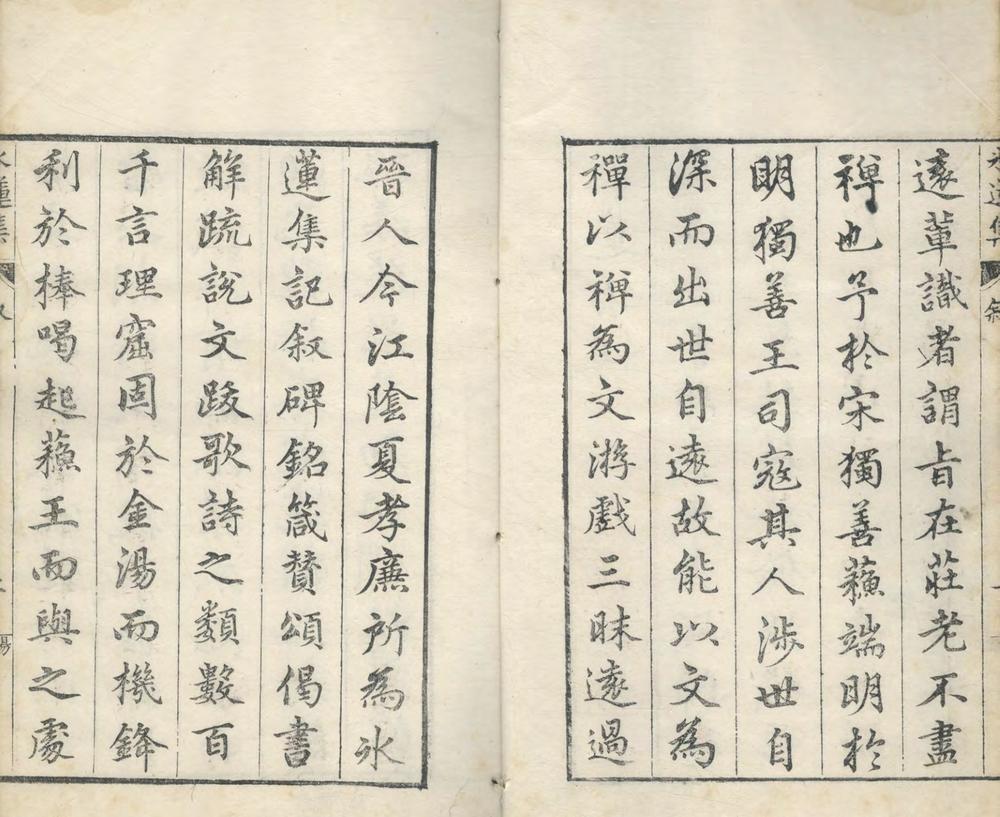 蓮集 叙
遠輩識者謂旨在莊老不盡
禪也予於宋獨善蘓端明於
明獨善王司寇其人涉世自
深而出世自遠故能以文為
禪以禪為文游戲三昧遠過
晉人今江陰夏孝廉所為氷
蓮集記叙碑銘箴賛頌偈書
解疏說文跋歌詩之類數百
千言理窟固於金湯而機鋒
利於棒喝起蘓王而與之處
蓮集